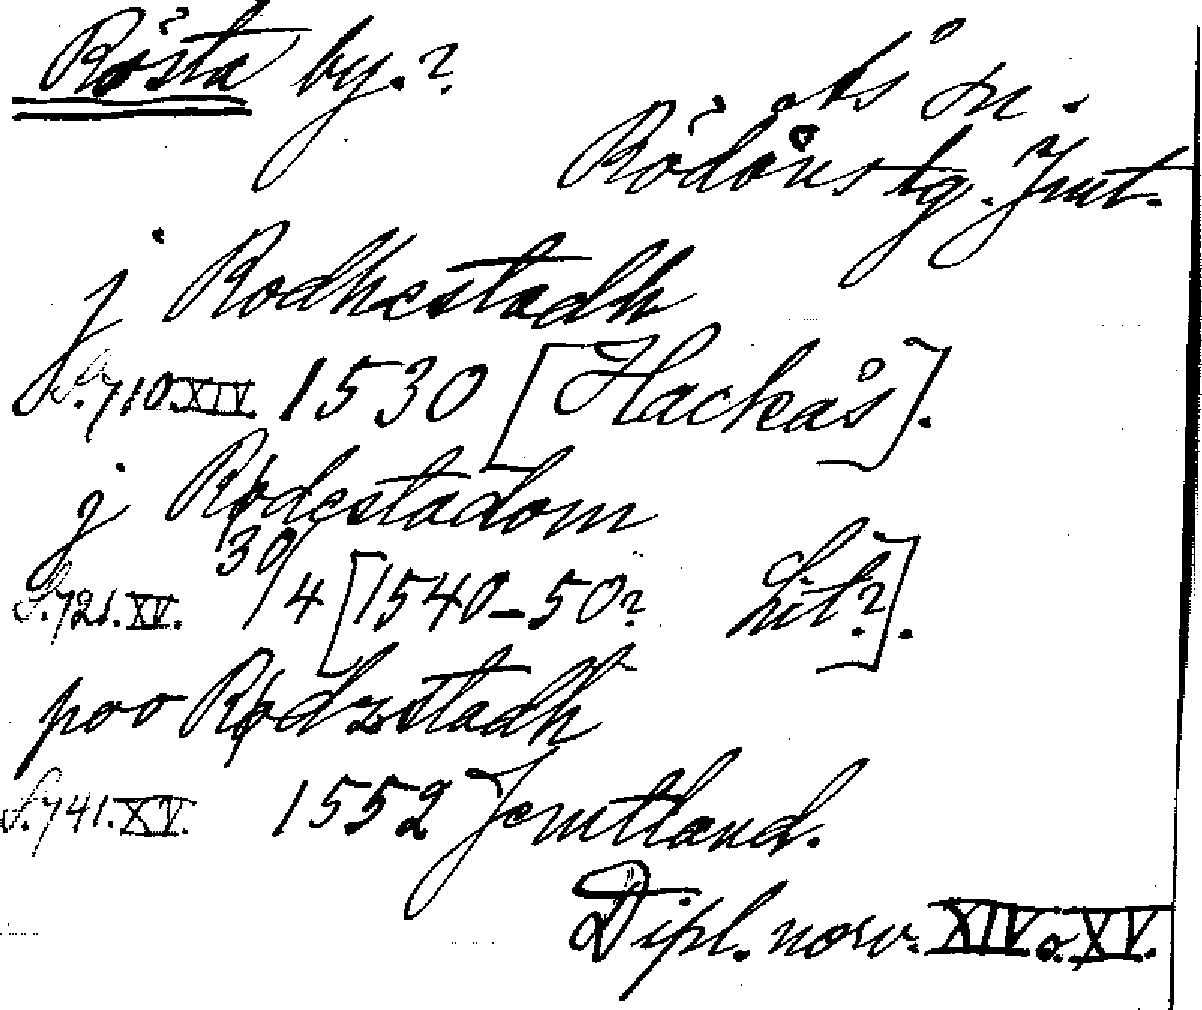 Rösta by.?
Ås sn.
Rödöns tg. Jmt.
j Rodhestadh
S. 710. XIV. 1530 [Hackås].
j Rødestadom
S. 721. XV. 30/4 [1540-50? Lit?].
poo Rødzstadh
S. 741. XV. 1552 Jemtland.
Dipl. norv. XIV o. XV.